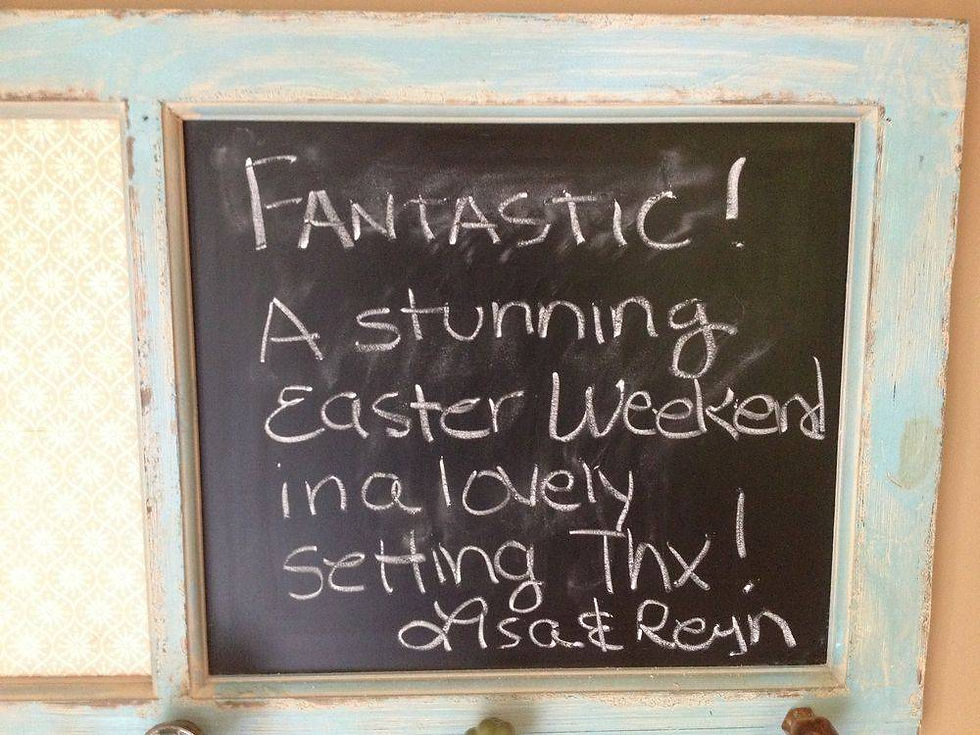 FANTASTIC!
A stunning
Easter Weekend
in a lovely
setting Thx!
Lisa & Reyn